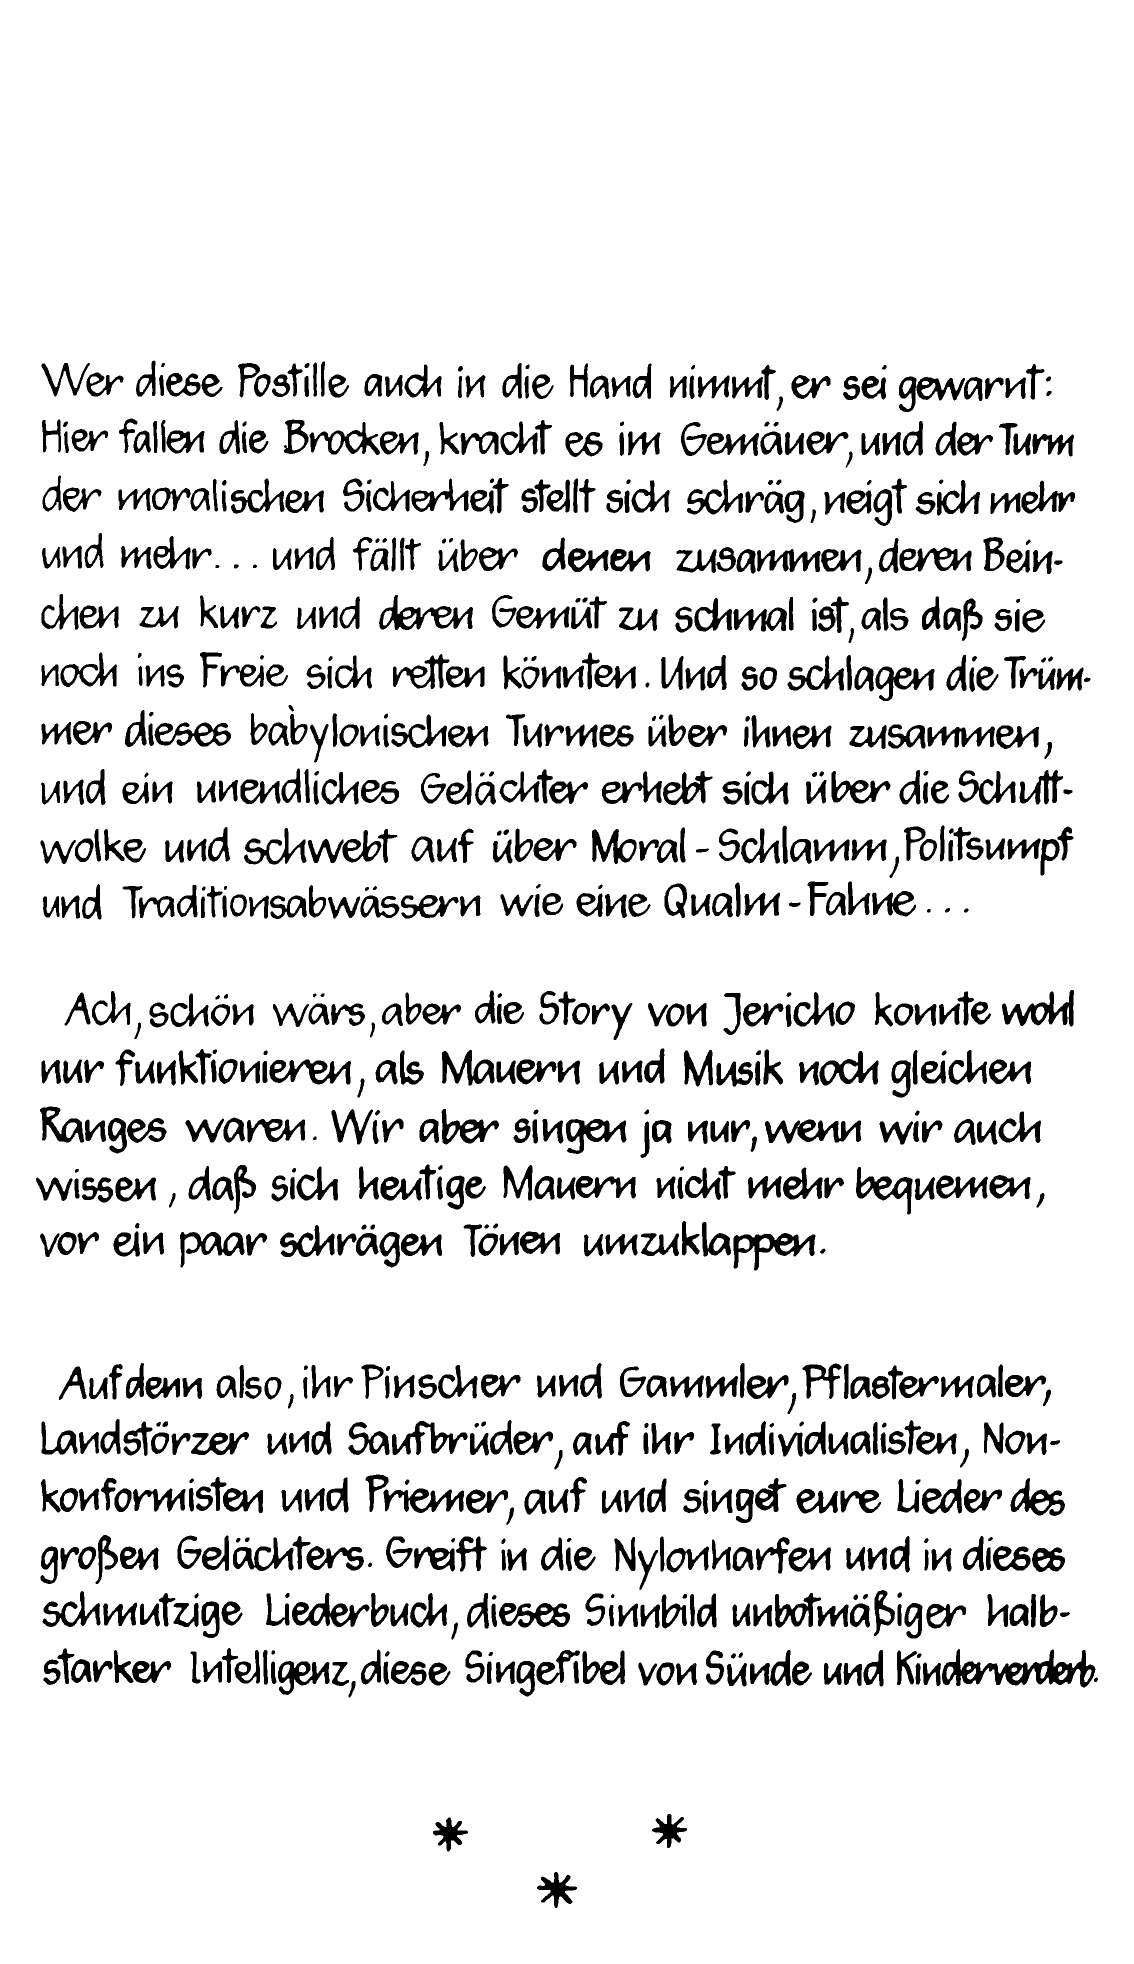 Wer diese Postille auch in die Hand nimmt, er sei gewarnt:
Hier fallen die Brocken, kracht es im Gemäuer, und der Turm
der moralischen Sicherheit stellt sich schräg, neigt sich mehr
und mehr... und fällt über denen zusammen, deren Bein-
chen zu kurz und deren Gemüt zu schmal ist, als daß sie
noch ins Freie sich retten könnten. Und so schlagen die Trüm-
mer dieses babylonischen Turmes über ihnen zusammen,
und ein unendliches Gelächter erhebt sich über die Schutt-
wolke und schwebt auf über Moral-Schlamm, Politsumpf
und Traditionsabwässern wie eine Qualm-Fahne...
Ach, schön wärs, aber die Story von Jericho konnte wohl
nur funktionieren, als Mauern und Musik noch gleichen
Ranges waren. Wir aber singen ja nur, wenn wir auch
wissen, daß sich heutige Mauern nicht mehr bequemen,
vor ein paar schrägen Tönen umzuklappen.
Auf denn also, ihr Pinscher und Gammler, Pflastermaler,
Landstörzer und Saufbrüder, auf ihr Individualisten, Non-
konformisten und Priemer, auf und singet eure Lieder des
großen Gelächters. Greift in die Nylonharfen und in dieses
schmutzige Liederbuch, dieses Sinnbild unbotmäßiger halb-
starker Intelligenz, diese Singefibel von Sünde und Kinderverderb.